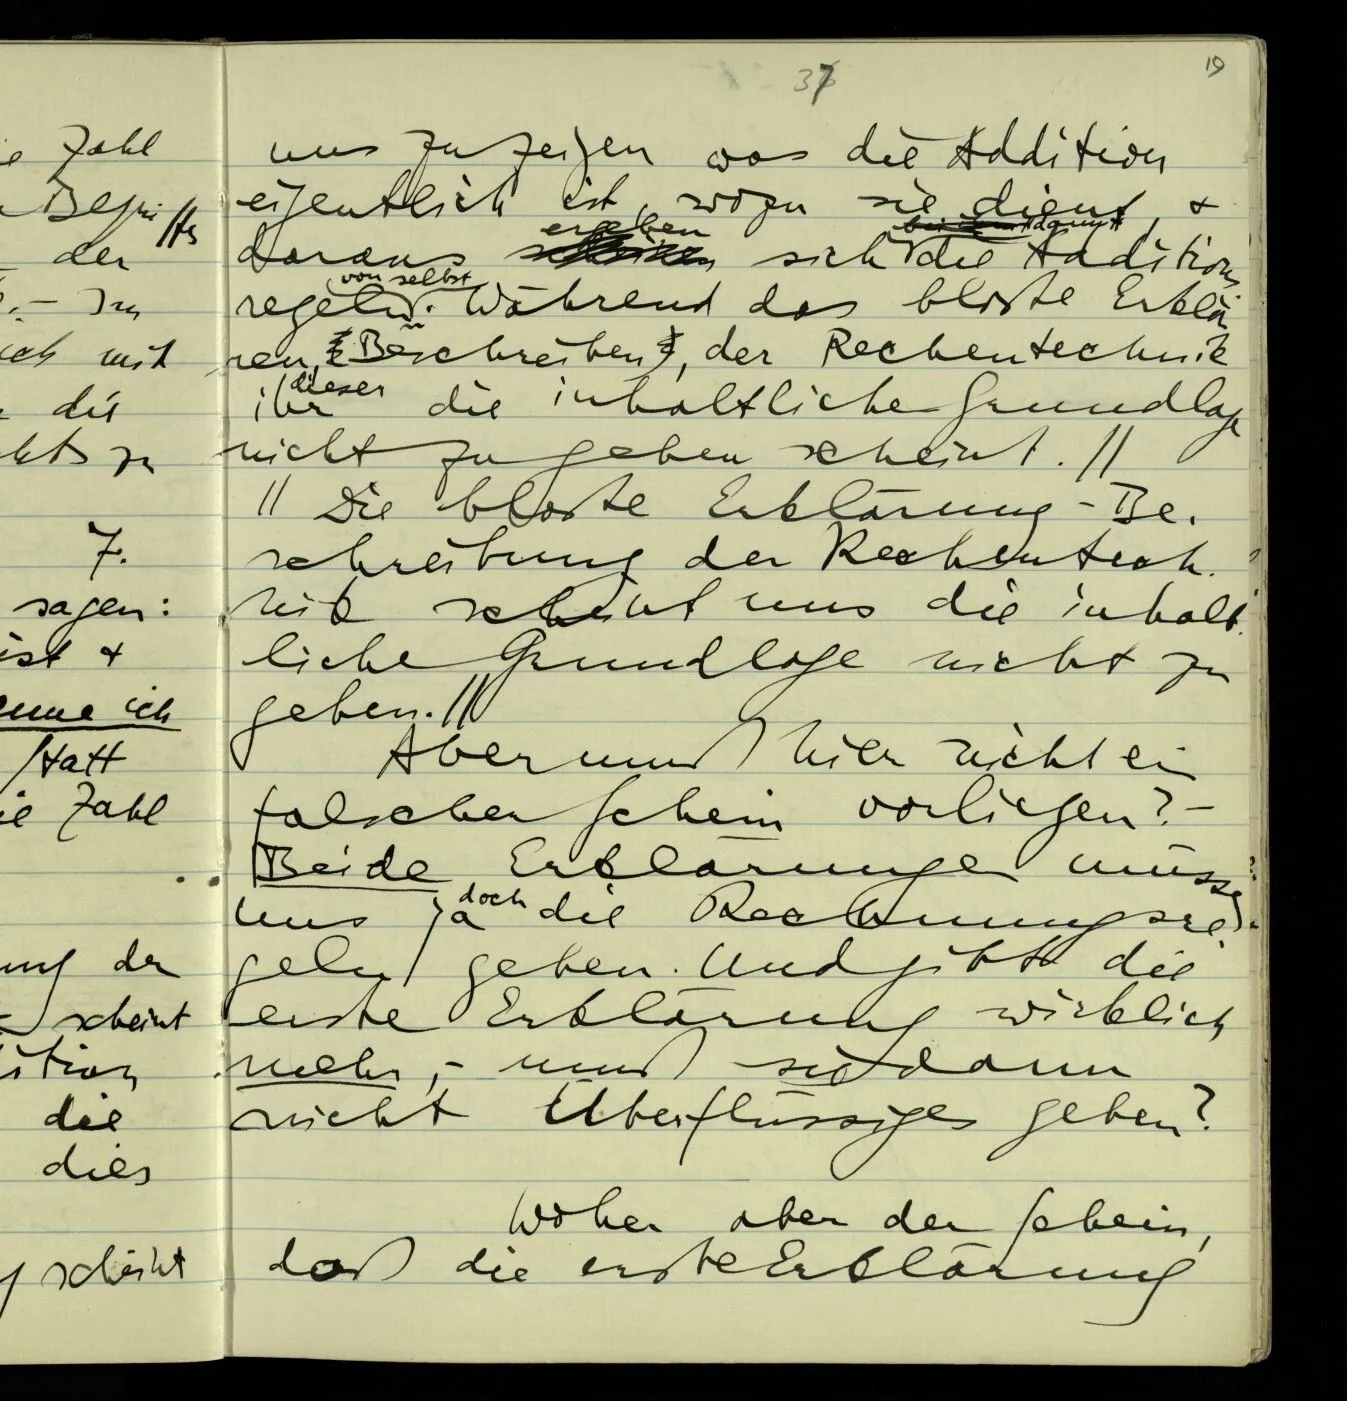 37
19
uns zu zeigen was die Addition
eigentlich ist, wozu sie dient, &
ergeben damit
daraus sich die Additions
von selbst
regeln. Während das bloße Erklä
ren, Beschreiben, der Rechentechnik
dieser
ihr die inhaltliche Grundlage
nicht zu geben scheint. //
// Die bloße Erklärung - Be-
schreibung der Rechentech-
nik scheint uns die inhalt-
liche Grundlage nicht zu
geben. //
Aber muß hier nicht ein
falscher Schein vorliegen? –
Beide Erklärungen müssen
doch
uns ja die Rechnungsre-
geln geben. Und gibt die
erste Erklärung wirklich
mehr, – muß sie dann
nicht Überflüssiges geben?
Woher aber der Schein,
daß die erste Erklärung
Zahl
der
mit
die
zu
7.
sagen:
ist &
ich
statt
Zahl
der
scheint
die
dies
scheint